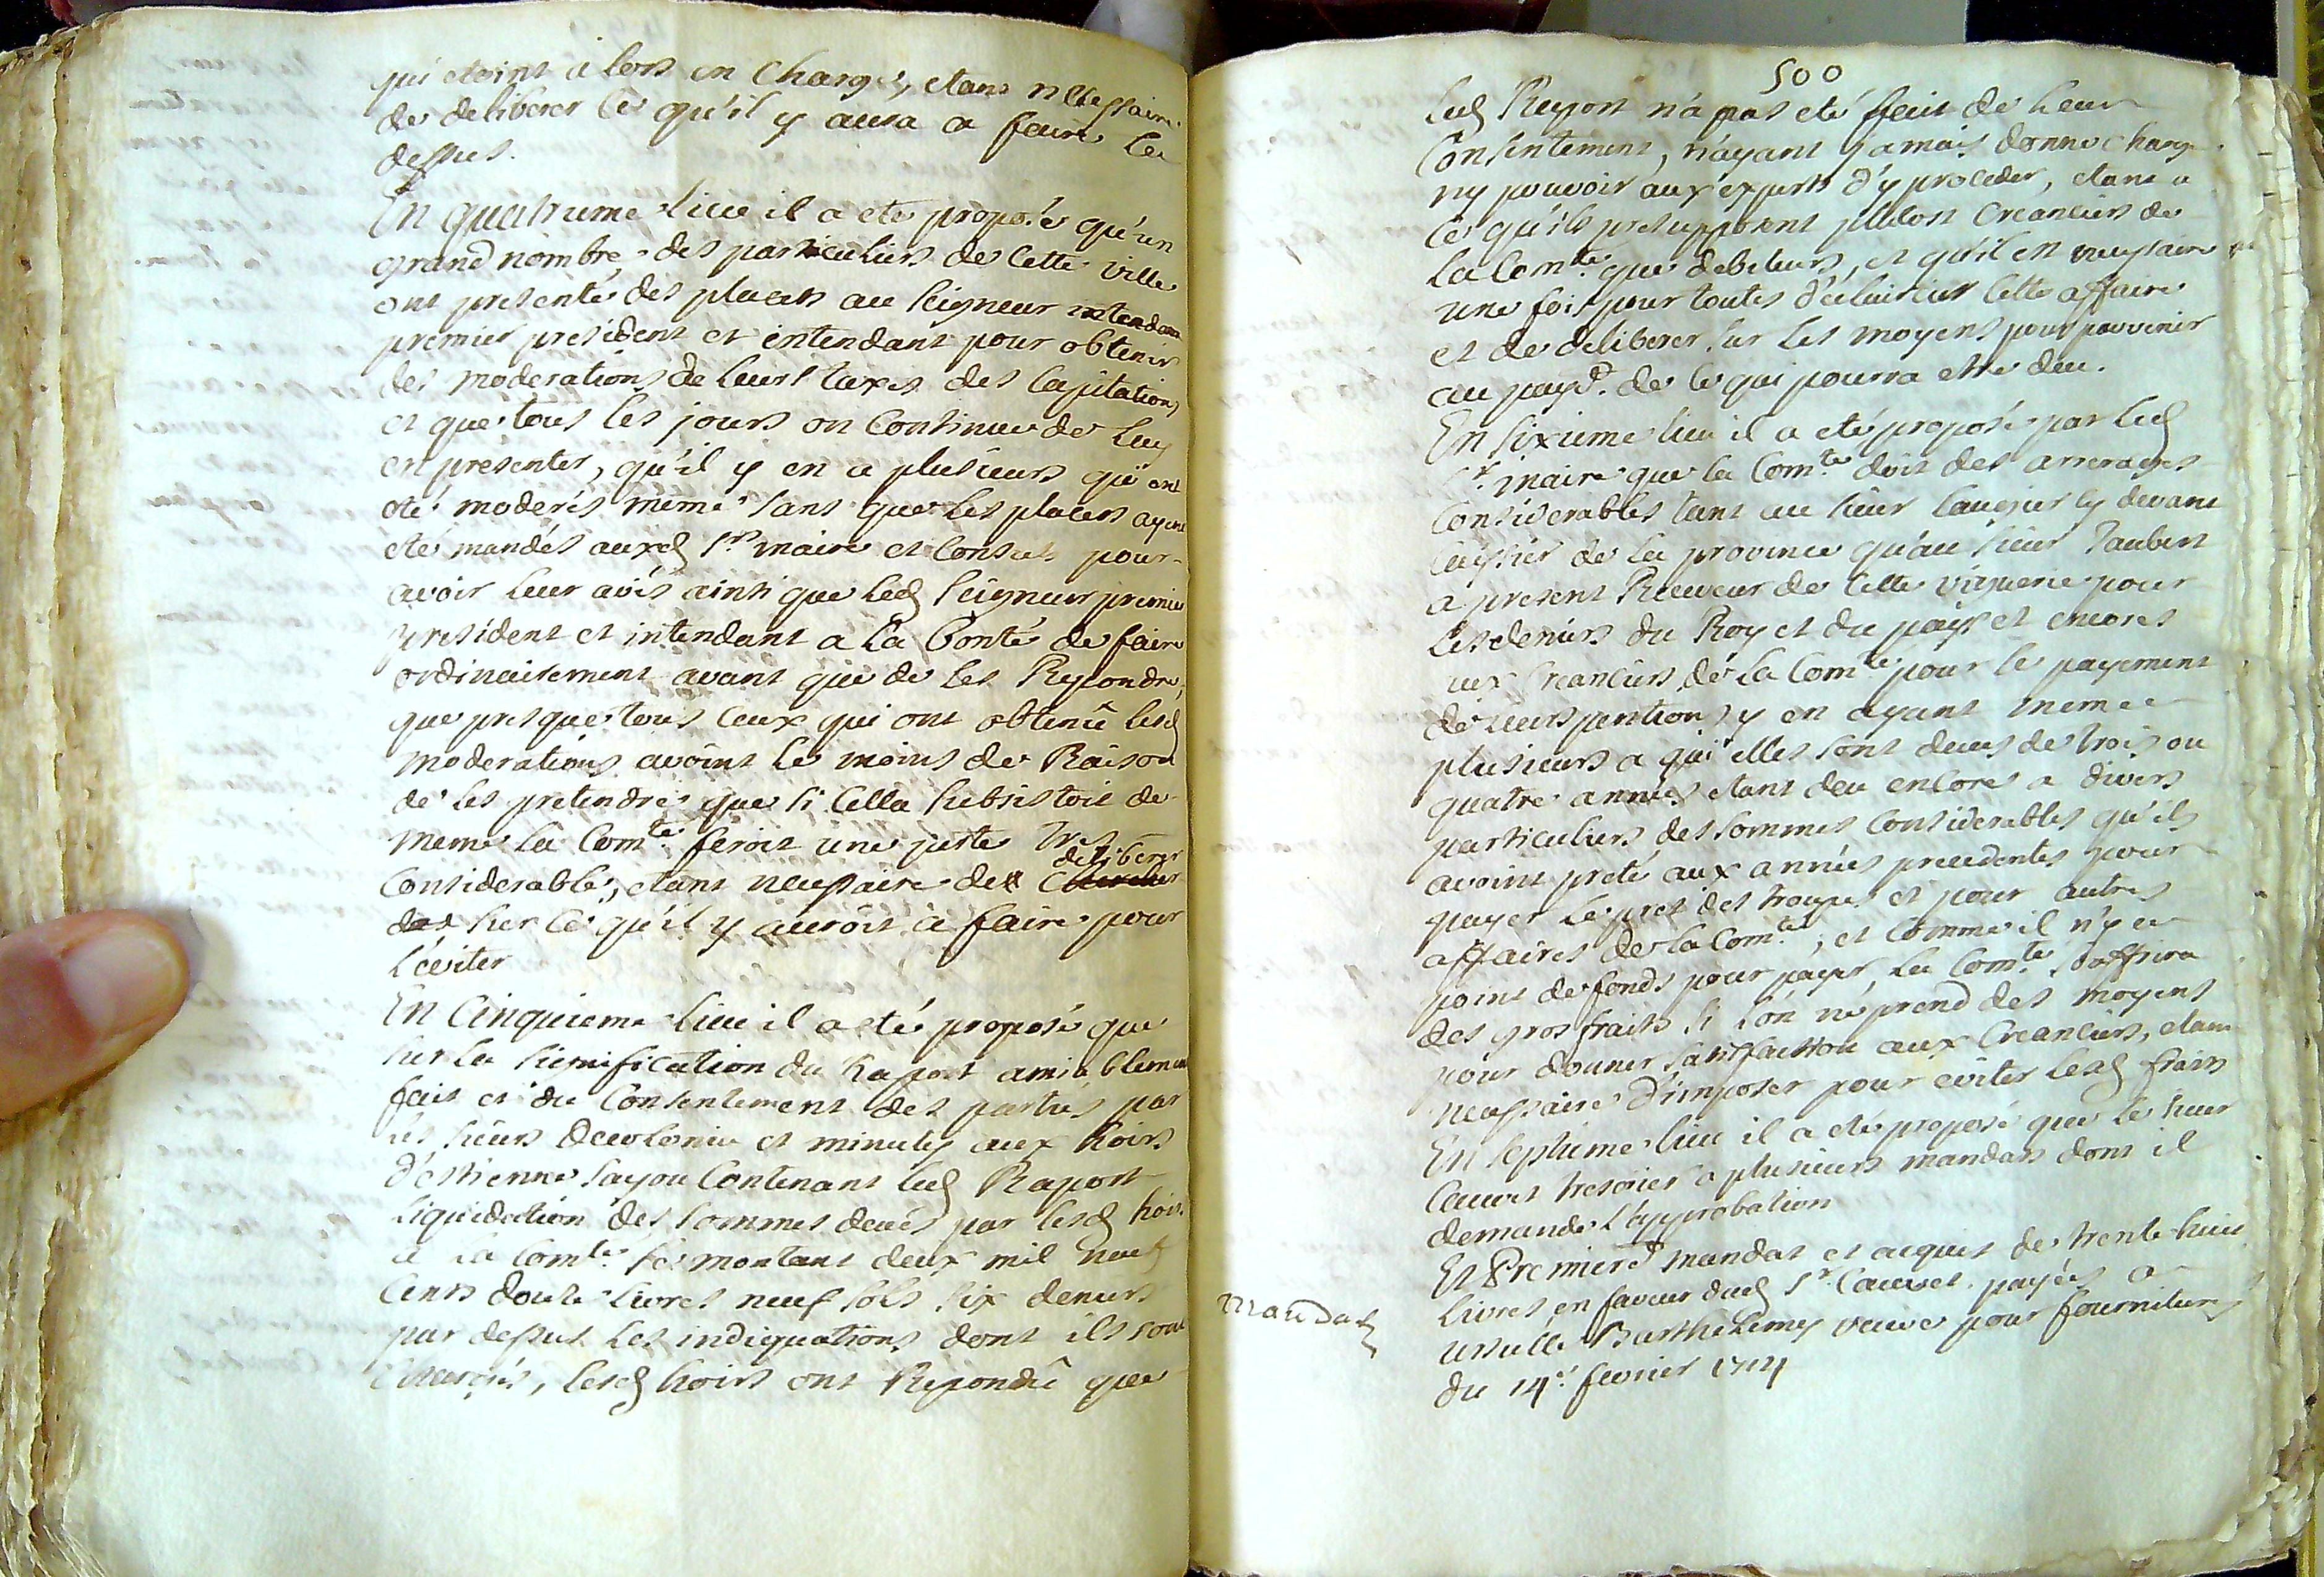 qui etoint a lors en Charge, etant necessaire
de deliberer ce qu'il y aura a faire la
dessus.
En quatrieme lieu il a ete proposé qu'un
grand nombre des particuliers de cette ville
ont presenté des placets au seigneur intendant
premier president et intendant pour obtenir
des moderations de leurs taxes des capitations
et que tous les jours on Continue de luy
en presenter, qu'il y en a plusieurs qui ont
eté moderés meme sans que les placets ayent
eté mandés auxd srs maire et Consuls pour
avoir leur avis ainsi que led seigneur premier
president et intendant a la bonté de faire
ordinairement avant que de les Repondre,
que presque tous Ceux qui ont obtenû lesd
moderations avoint le moins de Raison
de les pretendre que si Cella subsistoit de
meme la Comté feroit une perte tres
deliberer
Considerable, etant necessaire de
sur ce qu'il y auroit à faire pour
l'eviter
En Cinquieme lieu il a eté proposé que
sur la signification du Raport amiablement
fait et du Consentement des parties par
les sieurs Devoloniu et minuty aux hoirs
d'estienne sayou Contenant led Raport
liquidation des sommes deues par lesd hoirs
a la Comté se montant deux mil neuf
Cents douze livres neuf sols six deniers
par dessus les indiquations dont ils sont
Chargés, lesd hoirs ont Repondû que
500
led Raport n'a pas eté fait de leur
Consentement, n'ayant jamais donne charge
ny pouvoir aux experts d'y proceder, etant a
ce qu'ils presupposent plutost Creanciers de
la Comté que debiteurs, et qu'il est necessaire
une fois pour toutes d'eclaircir cette affaire
et de deliberer sur les moyens pour parvenir
au payt de ce qui pourra etre deu.
En sixieme lieu il a eté proposé par led
sr maire que la Comté doit des arrerages
Considerables tant au sieur laugier cy devant
Caissier de la province qu'au sieur Jaubert
a present Receveur de cette viguerie pour
les deniers du Roy et du pays et encores
aux Creanciers de la Comté pour le payement
de leurs pentions y en ayant meme
plusieurs a qui elles sont deues de trois ou
quatre années etant deu encore a divers
particuliers des sommes Considerables qu'ils
avoint preté aux années precedentes pour
payer le pret des troupes et pour autres
affaires de la Comté, et Comme il n'y a
point de fonds pour payer la Comté souffrira
des gros fraits si l'on ne prend des moyens
pour donner satisfaction aux Creanciers, etant
necessaire d'imposer pour eviter lesd frais
En septieme lieu il a eté proposé que le sieur
Cauvet tresorier a plusieurs mandats dont il
demande l'approbation
Et Premiere mandat et acquit de trente huit
livres en faveur dud sr Cauvet payées a
ursulle Barthelemy veuve pour fournitures
du 14e fevrier 1714
mandats